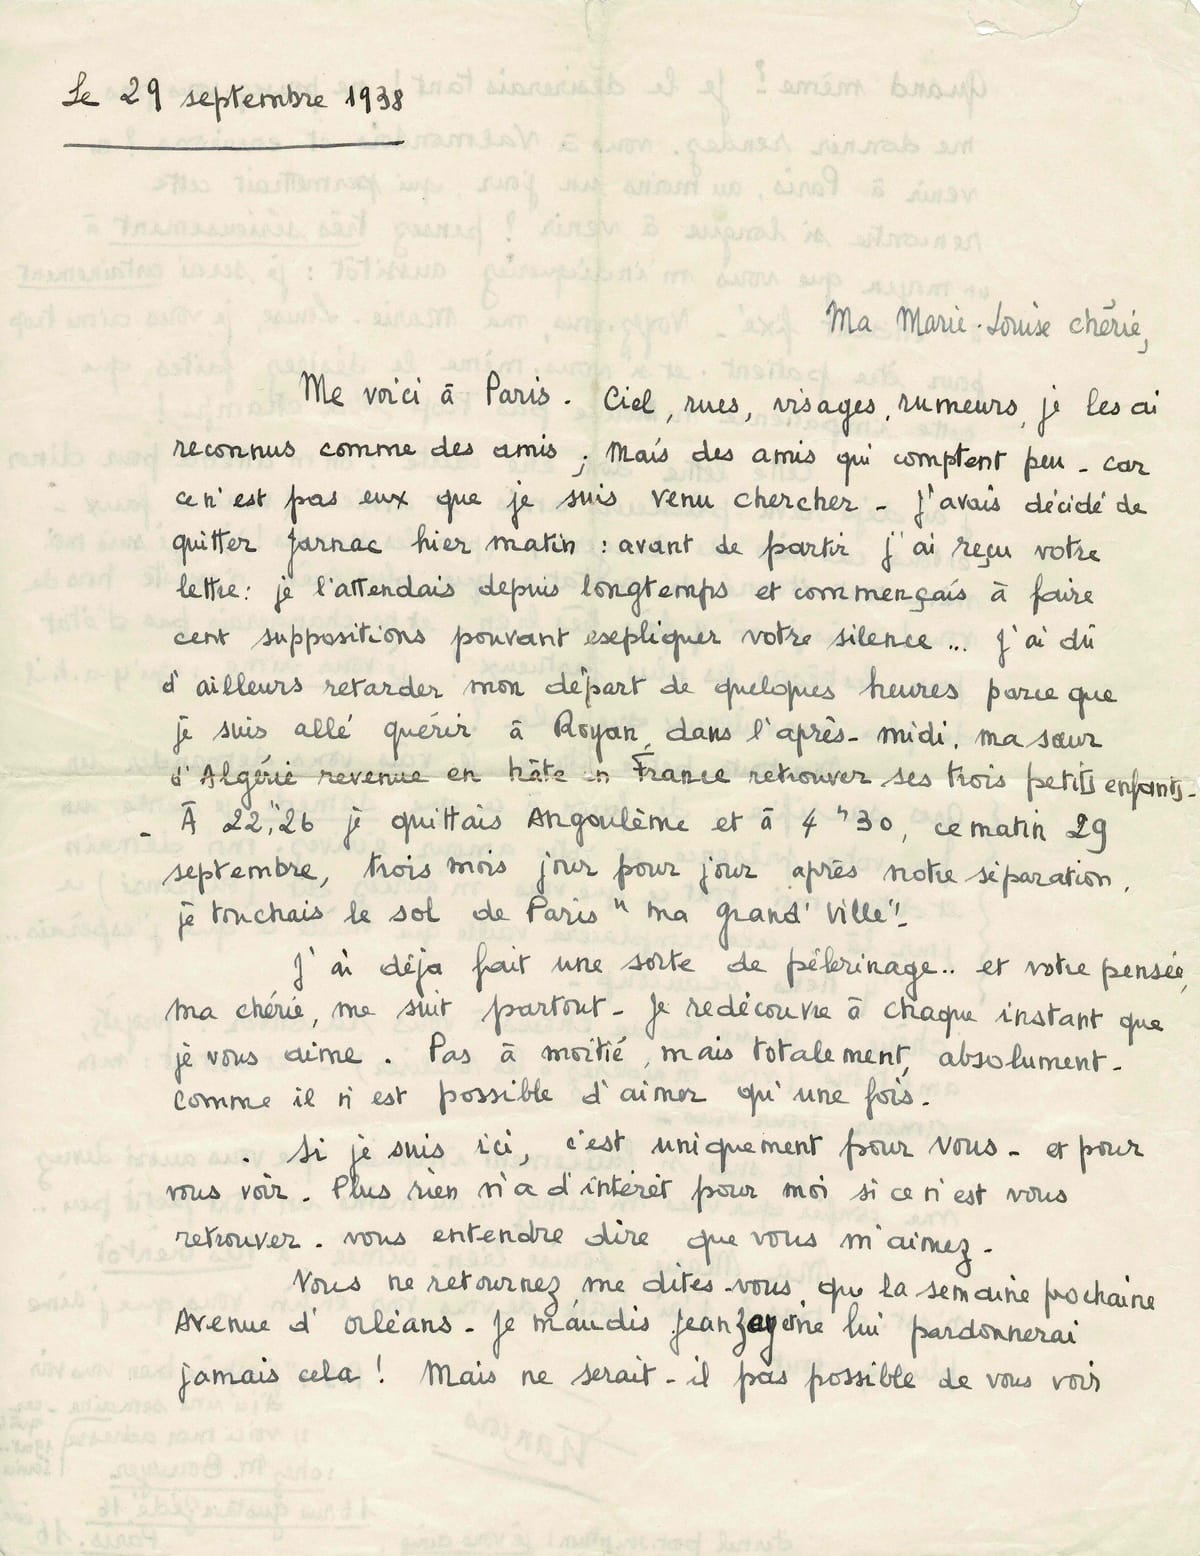 Le 29 septembre 1938
Ma Marie-Louise chérie,
Me voici à Paris. Ciel, rues, visages, rumeurs, je les ai
reconnus comme des amis ; Mais des amis qui comptent peu - car
ce n'est pas eux que je suis venu chercher - J'avais décidé de
quitter Jarnac hier matin : avant de partir j'ai reçu votre
lettre : je l'attendais depuis longtemps et commençais à faire
cent suppositions pouvant esepliquer votre silence ... J'ai dû
d'ailleurs retarder mon départ de quelques heures parce que
je suis allé quérir à Royan, dans l'après-midi, ma sœur
d'Algérie revenue en hâte en France retrouver ses trois petits enfants -
- À 22h26 je quittais Angoulême et à 4h30, ce matin 29
septembre, trois mois jour pour jour après notre séparation,
je touchais le sol de Paris "ma grand' ville" -
J'ai déja fait une sorte de pélerinage .. et votre pensée,
ma chérie, me suit partout - Je redécouvre à chaque instant que
je vous aime. Pas à moitié, mais totalement, absolument -
comme il n'est possible d'aimer qu'une fois.
. Si je suis ici, c'est uniquement pour vous - et pour
vous voir. Plus rien n'a d'intérêt pour moi si ce n'est vous
retrouver. vous entendre dire que vous m'aimez -
Vous ne retournez, me dites-vous, que la semaine prochaine
Avenue d'Orléans - Je maudis Jean Zay et ne lui pardonnerai
jamais cela ! Mais ne serait-il pas possible de vous voir